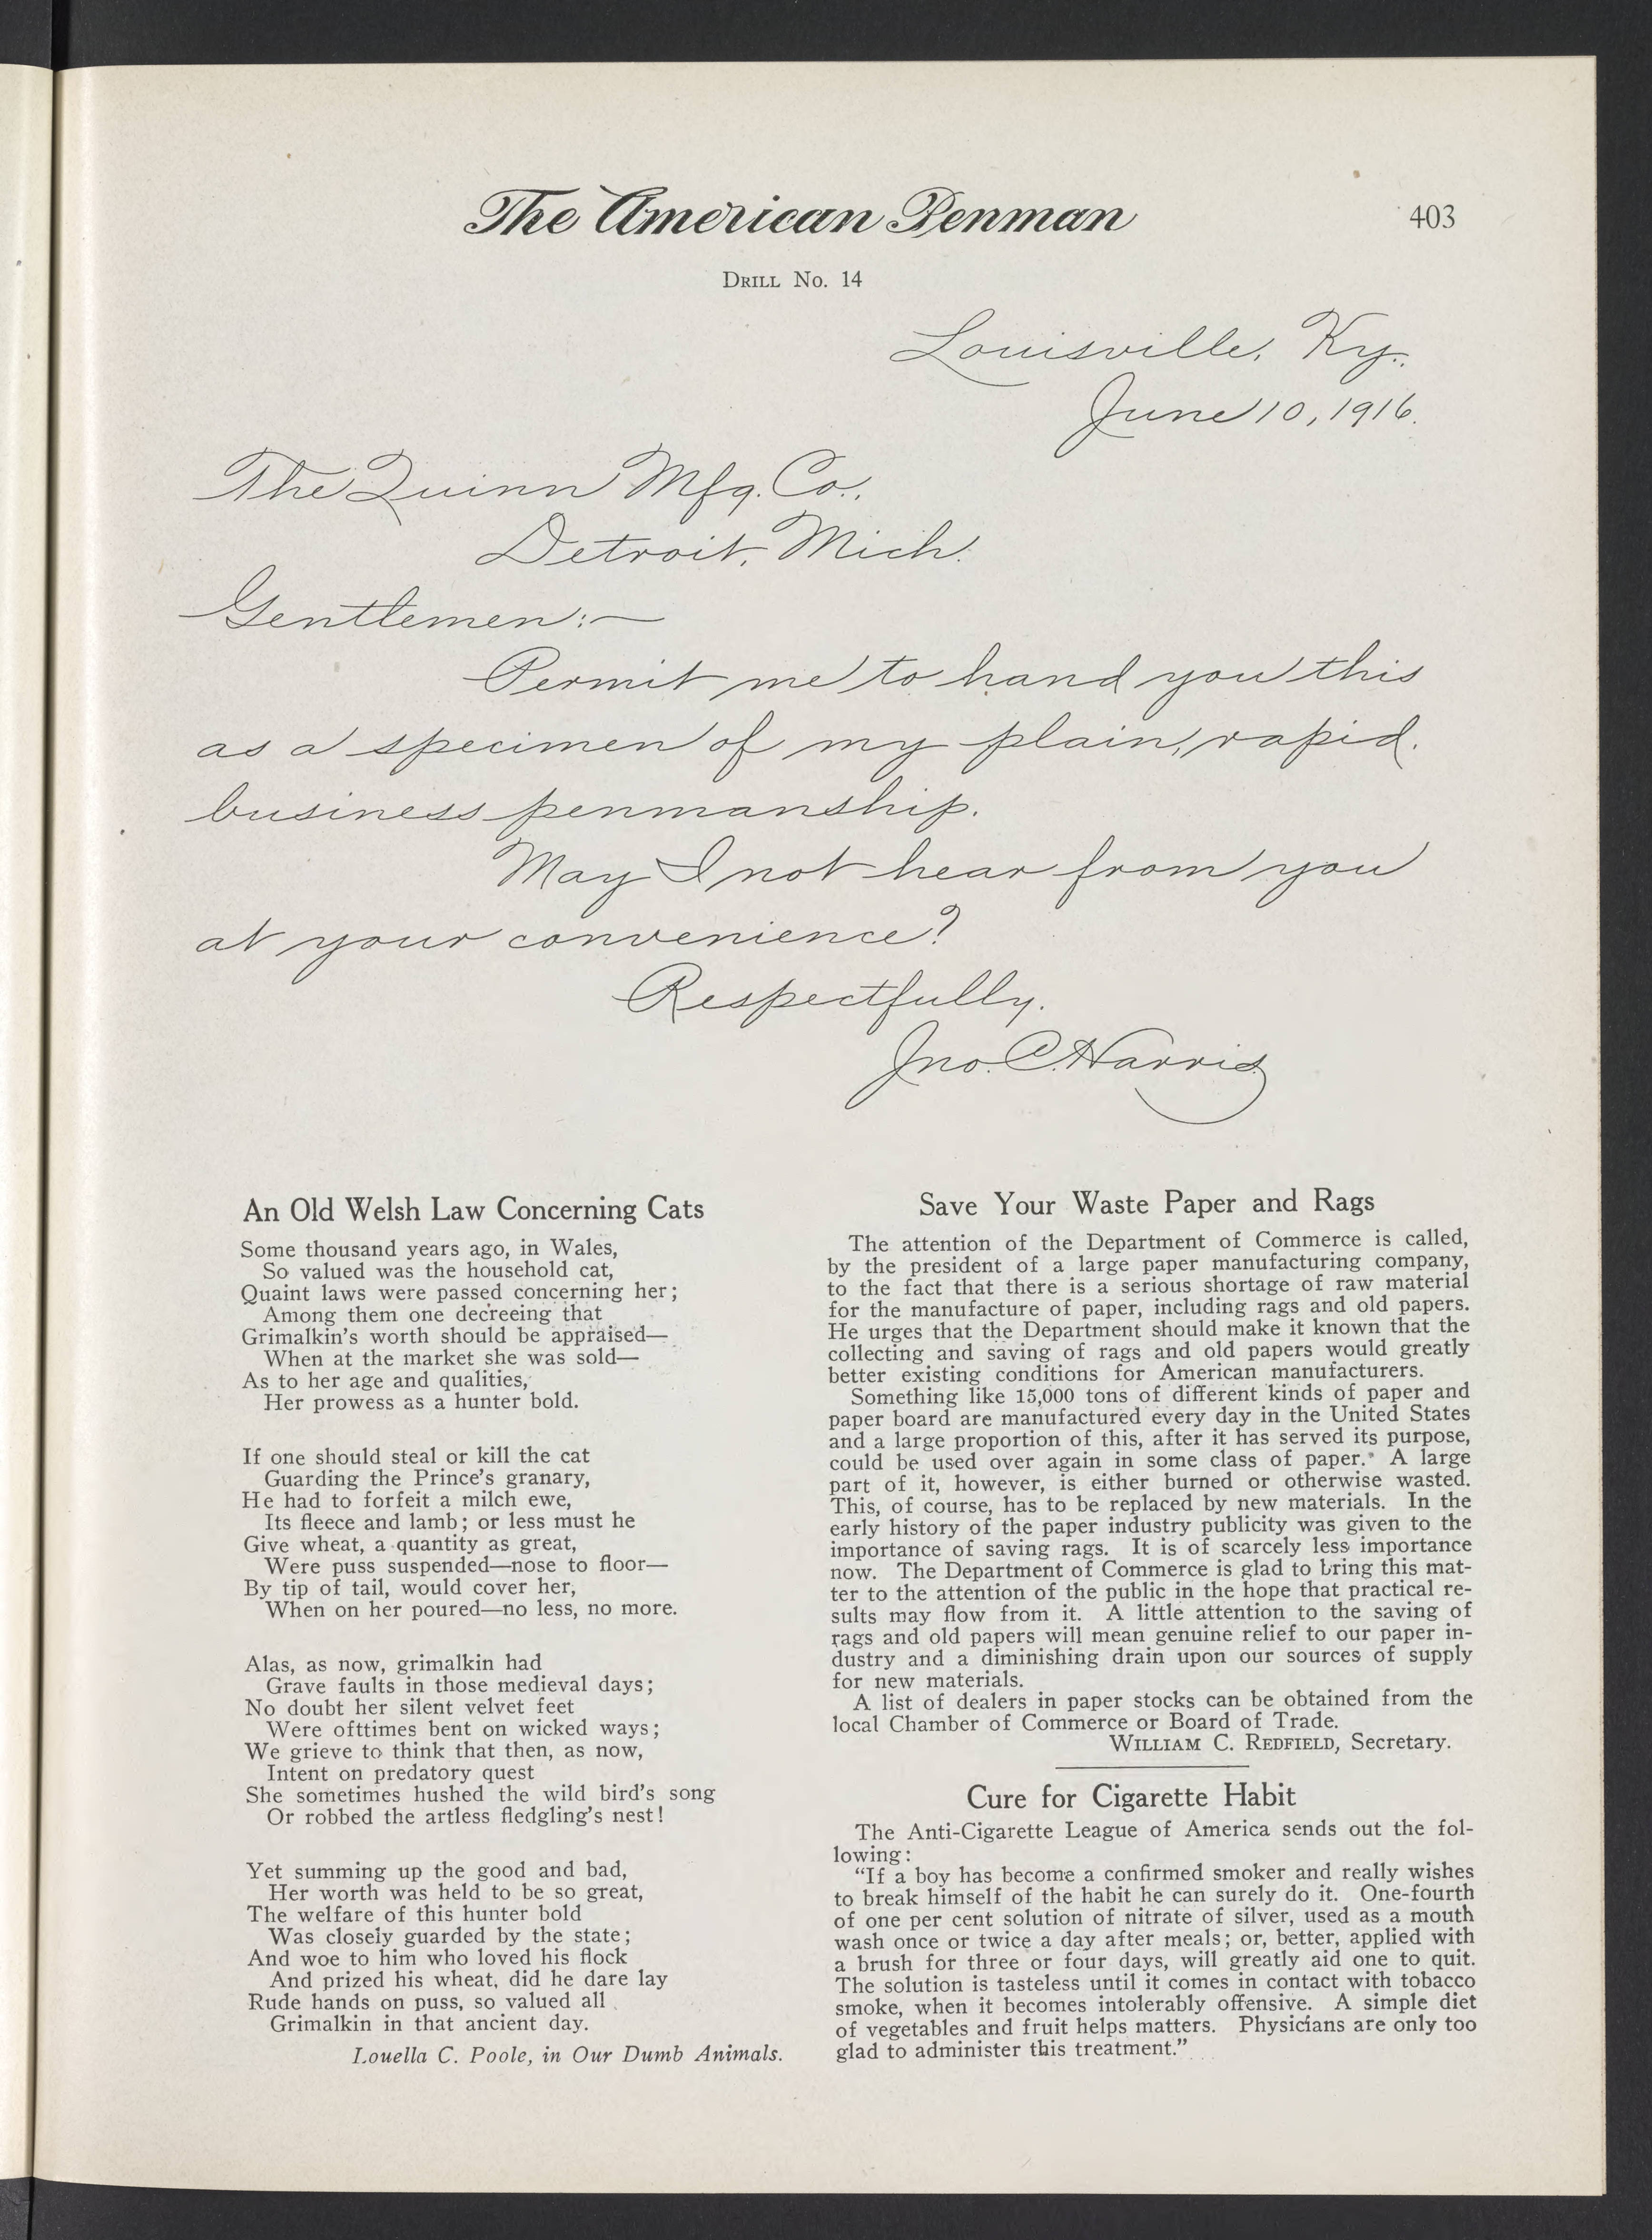 The American Penman
403
Drill No. 14
Louisville, Ky.,
June 10, 1916.
The Quinn Mfg. Co.,
Detroit, Mich.
Gentlemen:—
Permit me to hand you this
as a specimen of my plain, rapid,
business penmanship.
May I not hear from you
at your convenience?
Respectfully,
Jno. C. Harris
An Old Welsh Law Concerning Cats
Some thousand years ago, in Wales,
So valued was the household cat,
Quaint laws were passed concerning her;
Among them one decreeing that
Grimalkin's worth should be appraised—
When at the market she was sold—
As to her age and qualities,
Her prowess as a hunter bold.
If one should steal or kill the cat
Guarding the Prince's granary,
He had to forfeit a milch ewe,
Its fleece and lamb; or less must he
Give wheat, a quantity as great,
Were puss suspended—nose to floor—
By tip of tail, would cover her,
When on her poured—no less, no more.
Alas, as now, grimalkin had
Grave faults in those medieval days;
No doubt her silent velvet feet
Were ofttimes bent on wicked ways;
We grieve to think that then, as now,
Intent on predatory quest
She sometimes hushed the wild bird's song
Or robbed the artless fledgling's nest!
Yet summing up the good and bad,
Her worth was held to be so great,
The welfare of this hunter bold
Was closely guarded by the state;
And woe to him who loved his flock
And prized his wheat, did he dare lay
Rude hands on puss, so valued all
Grimalkin in that ancient day.
Louella C. Poole, in Our Dumb Animals.
Save Your Waste Paper and Rags
The attention of the Department of Commerce is called,
by the president of a large paper manufacturing company,
to the fact that there is a serious shortage of raw material
for the manufacture of paper, including rags and old papers.
He urges that the Department should make it known that the
collecting and saving of rags and old papers would greatly
better existing conditions for American manufacturers.
Something like 15,000 tons of different kinds of paper and
paper board are manufactured every day in the United States
and a large proportion of this, after it has served its purpose,
could be used over again in some class of paper. A large
part of it, however, is either burned or otherwise wasted.
This, of course, has to be replaced by new materials. In the
early history of the paper industry publicity was given to the
importance of saving rags. It is of scarcely less importance
now. The Department of Commerce is glad to bring this mat-
ter to the attention of the public in the hope that practical re-
sults may flow from it. A little attention to the saving of
rags and old papers will mean genuine relief to our paper in-
dustry and a diminishing drain upon our sources of supply
for new materials.
A list of dealers in paper stocks can be obtained from the
local Chamber of Commerce or Board of Trade.
William C. Redfield, Secretary.
Cure for Cigarette Habit
The Anti-Cigarette League of America sends out the fol-
lowing:
"If a boy has become a confirmed smoker and really wishes
to break himself of the habit he can surely do it. One-fourth
of one per cent solution of nitrate of silver, used as a mouth
wash once or twice a day after meals; or, better, applied with
a brush for three or four days, will greatly aid one to quit.
The solution is tasteless until it comes in contact with tobacco
smoke, when it becomes intolerably offensive. A simple diet
of vegetables and fruit helps matters. Physicians are only too
glad to administer this treatment."